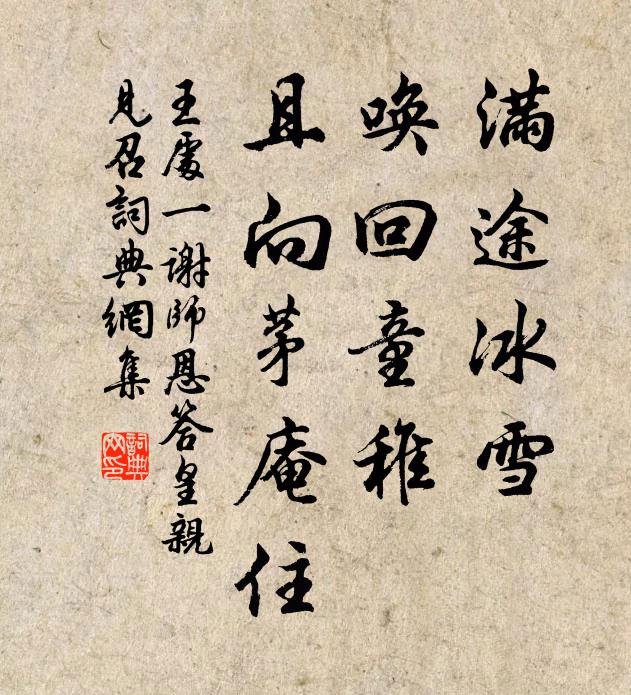 滿途冰雪
喚回童稚
且向茅庵住
王處一謝師恩答皇親
見召詞典網集
詞典網印